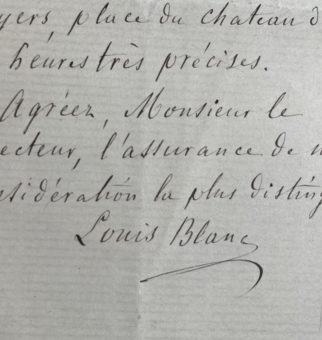 yers, place du chateau d
heures très précises.
Agréez, Monsieur le
ecteur, l'assurance de
nsidération la plus disting
Louis Blanc